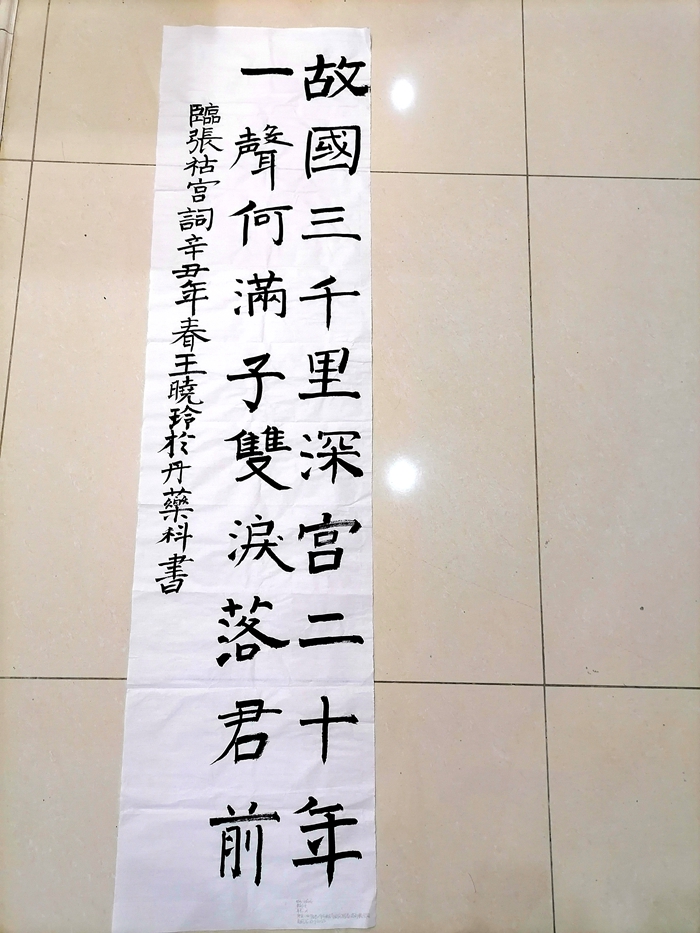 故國三千里深宫二十年
一聲何滿子雙淚落君前
臨張祜宫詞辛丑年春王曉玲於丹藥科書